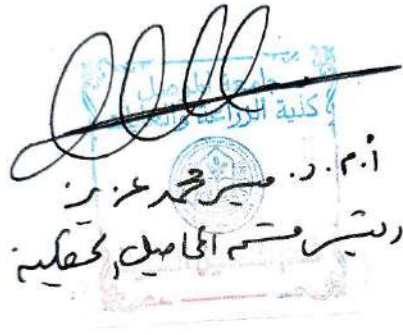 جامعة الموصل
كلية الزراعة والغابات
أ.م.د. ميسر محمد عزيز
رئيس قسم المحاصيل الحقلية